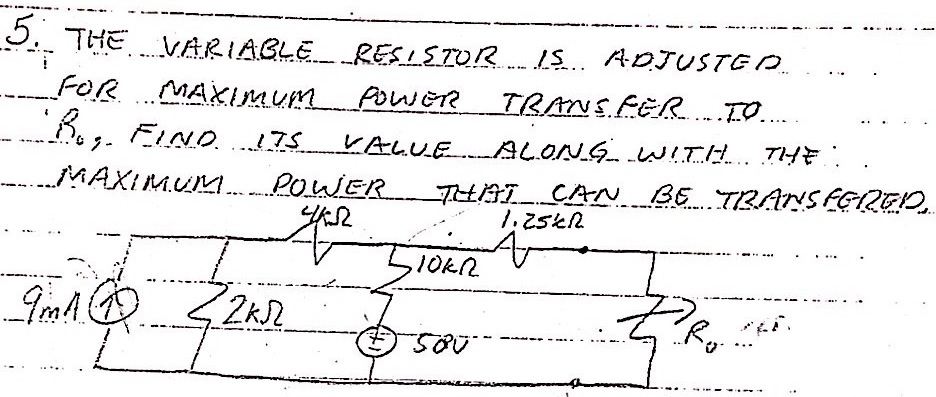 5. THE VARIABLE RESISTOR IS ADJUSTED
FOR MAXIMUM POWER TRANSFER TO
R₀, FIND ITS VALUE ALONG WITH THE
MAXIMUM POWER THAT CAN BE TRANSFERED.
4kΩ 1.25kΩ
10kΩ
9mA 2kΩ
50V R₀